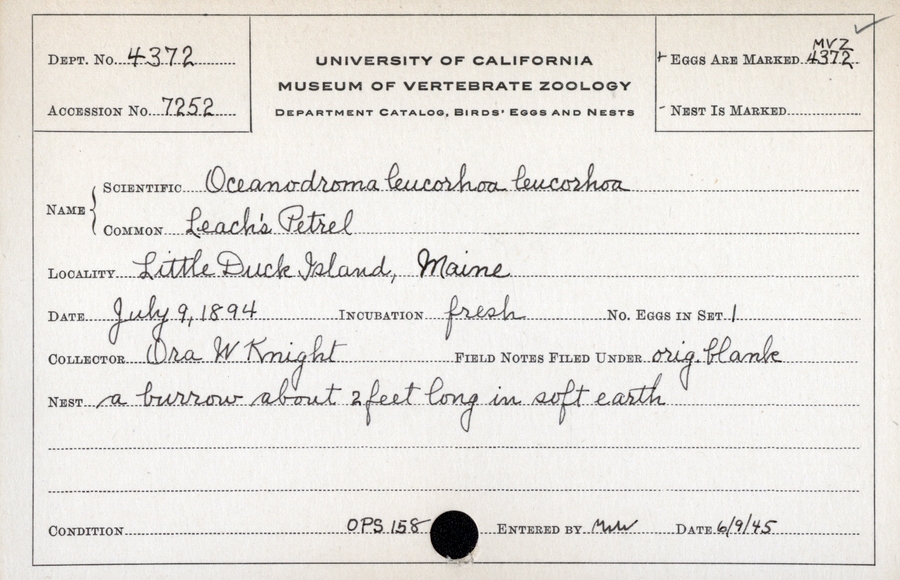 DEPT. NO. 4372
ACCESSION NO. 7252
UNIVERSITY OF CALIFORNIA
MUSEUM OF VERTEBRATE ZOOLOGY
DEPARTMENT CATALOG, BIRDS' EGGS AND NESTS
MVZ
+ EGGS ARE MARKED 4372
- NEST IS MARKED
NAME
SCIENTIFIC Oceanodroma leucorhoa leucorhoa
COMMON Leach's Petrel
LOCALITY Little Duck Island, Maine
DATE July 9, 1894 INCUBATION fresh NO. EGGS IN SET 1
COLLECTOR Ora W Knight FIELD NOTES FILED UNDER orig. blank
NEST a burrow about 2 feet long in soft earth
CONDITION OPS 158 ENTERED BY DATE 6/9/45